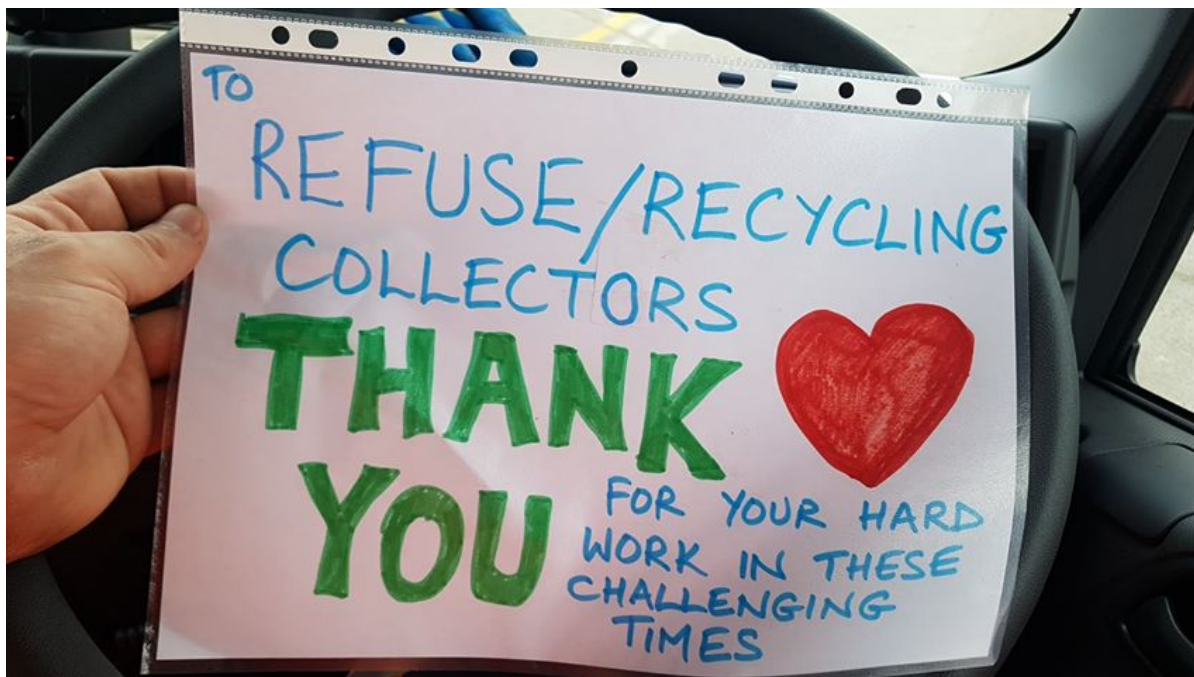 TO
REFUSE/RECYCLING
COLLECTORS
THANK
YOU
FOR YOUR HARD
WORK IN THESE
CHALLENGING
TIMES